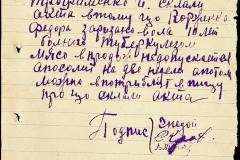 Трофименко И. склали
акта в тому що Корженко
Федора зарізано вола 10 лет
больной туберкулезом
мясо в продаж недопускается
а посолит на две недели а потом
можно в потриблять в пищу
про що склали акта
Подпис